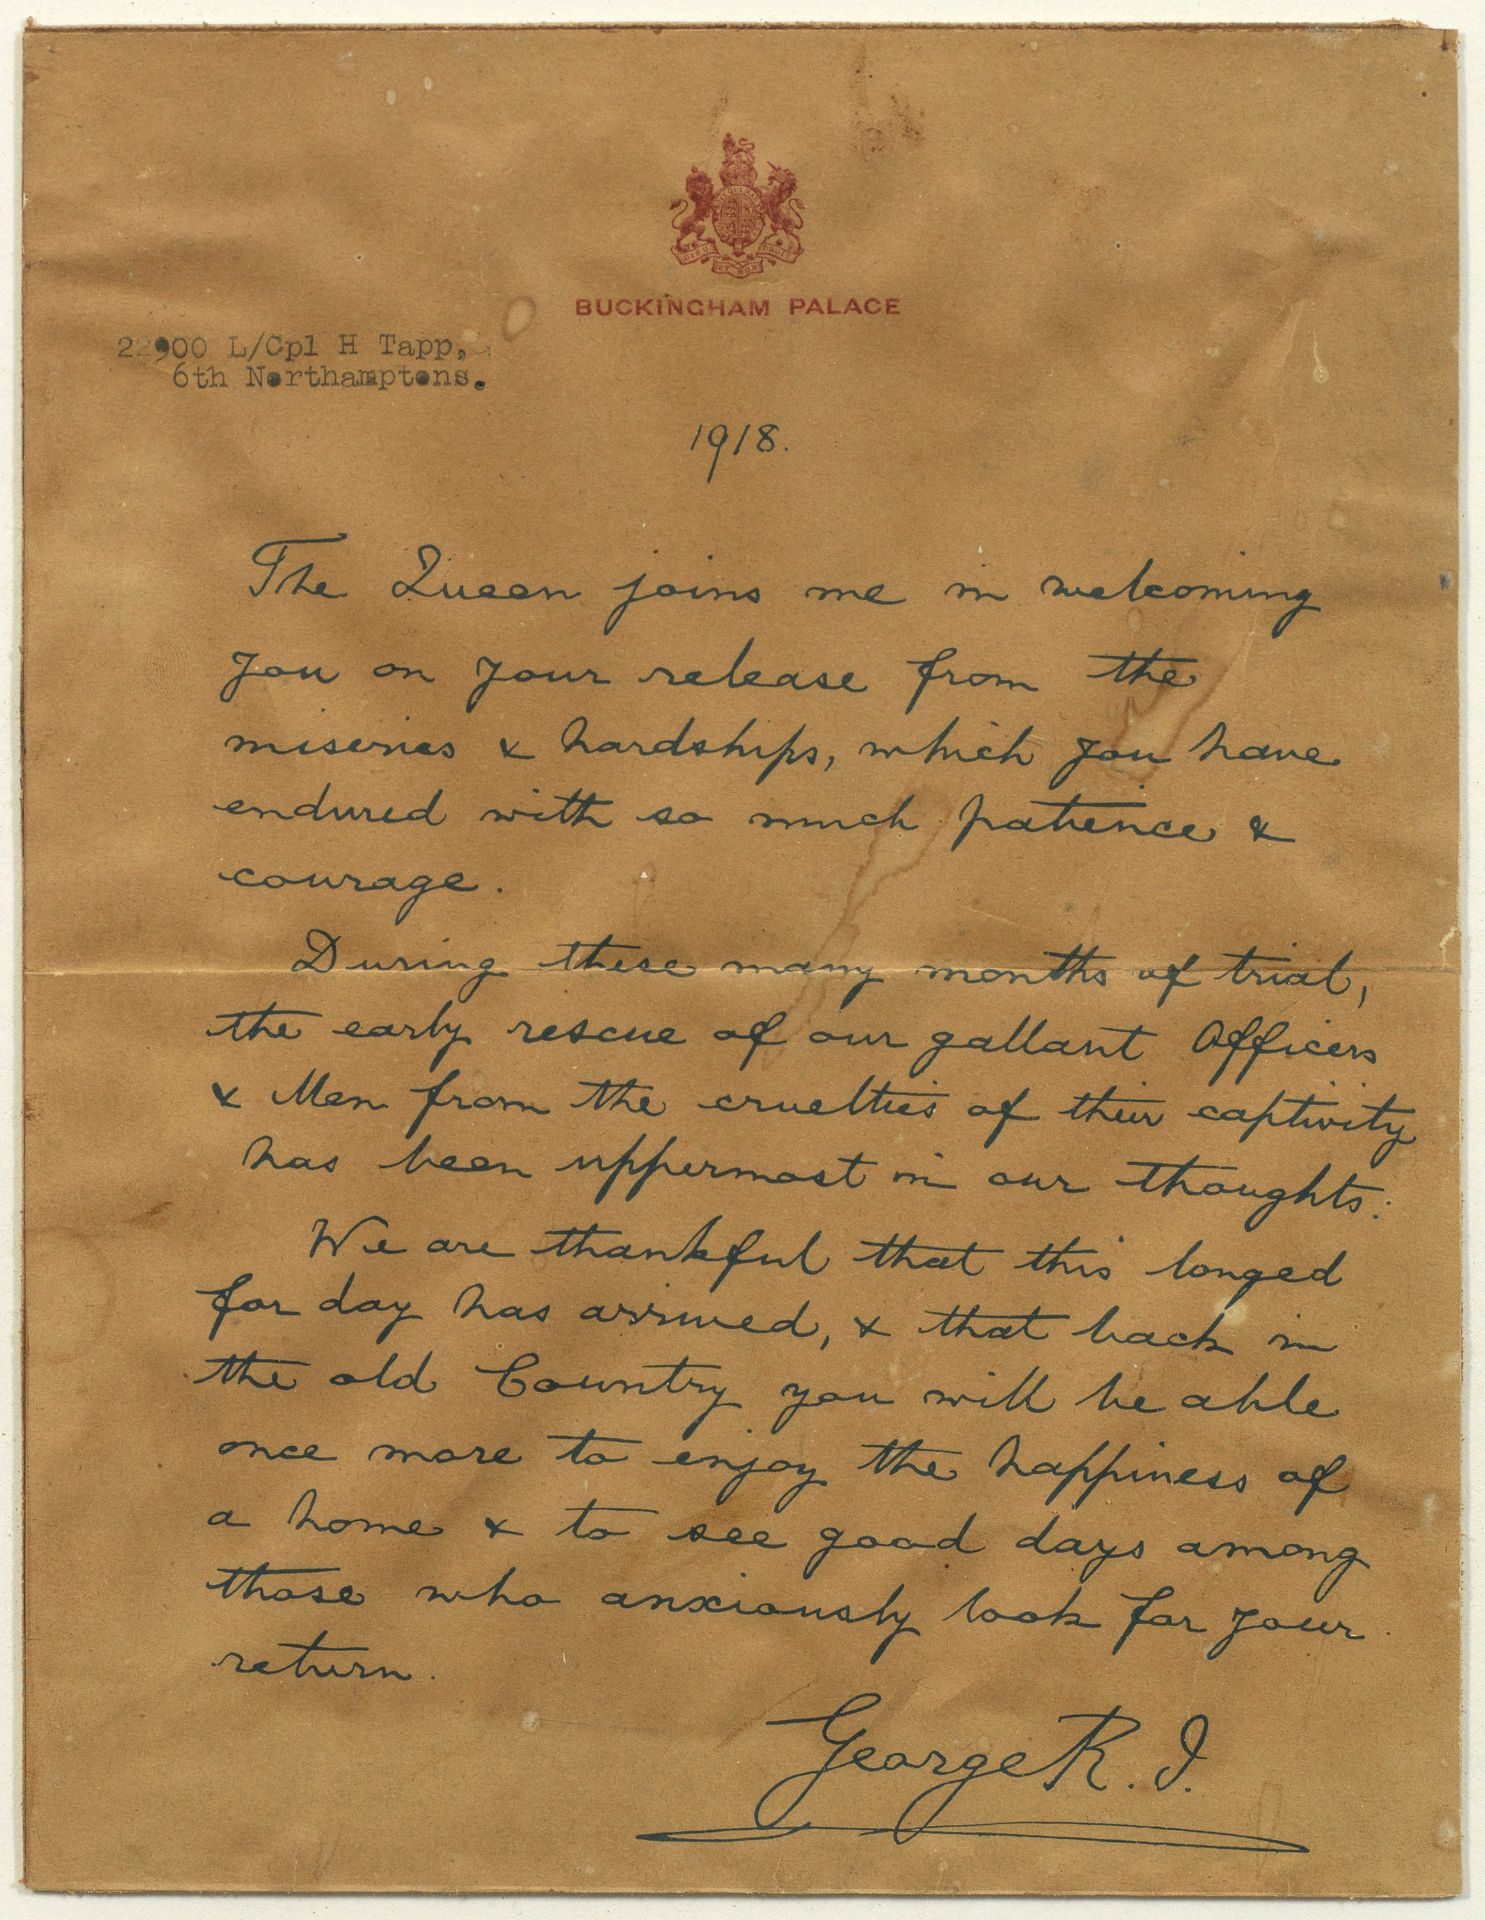 BUCKINGHAM PALACE
22900 L/Cpl H Tapp,
6th Northamptons.
1918.
The Queen joins me in welcoming
you on your release from the
miseries & hardships, which you have
endured with so much patience &
courage.
During these many months of trial,
the early rescue of our gallant Officers
& Men from the cruelties of their captivity
has been uppermost in our thoughts.
We are thankful that this longed
for day has arrived, & that back in
the old Country you will be able
once more to enjoy the happiness of
a home & to see good days among
those who anxiously look for your
return.
George R.I.